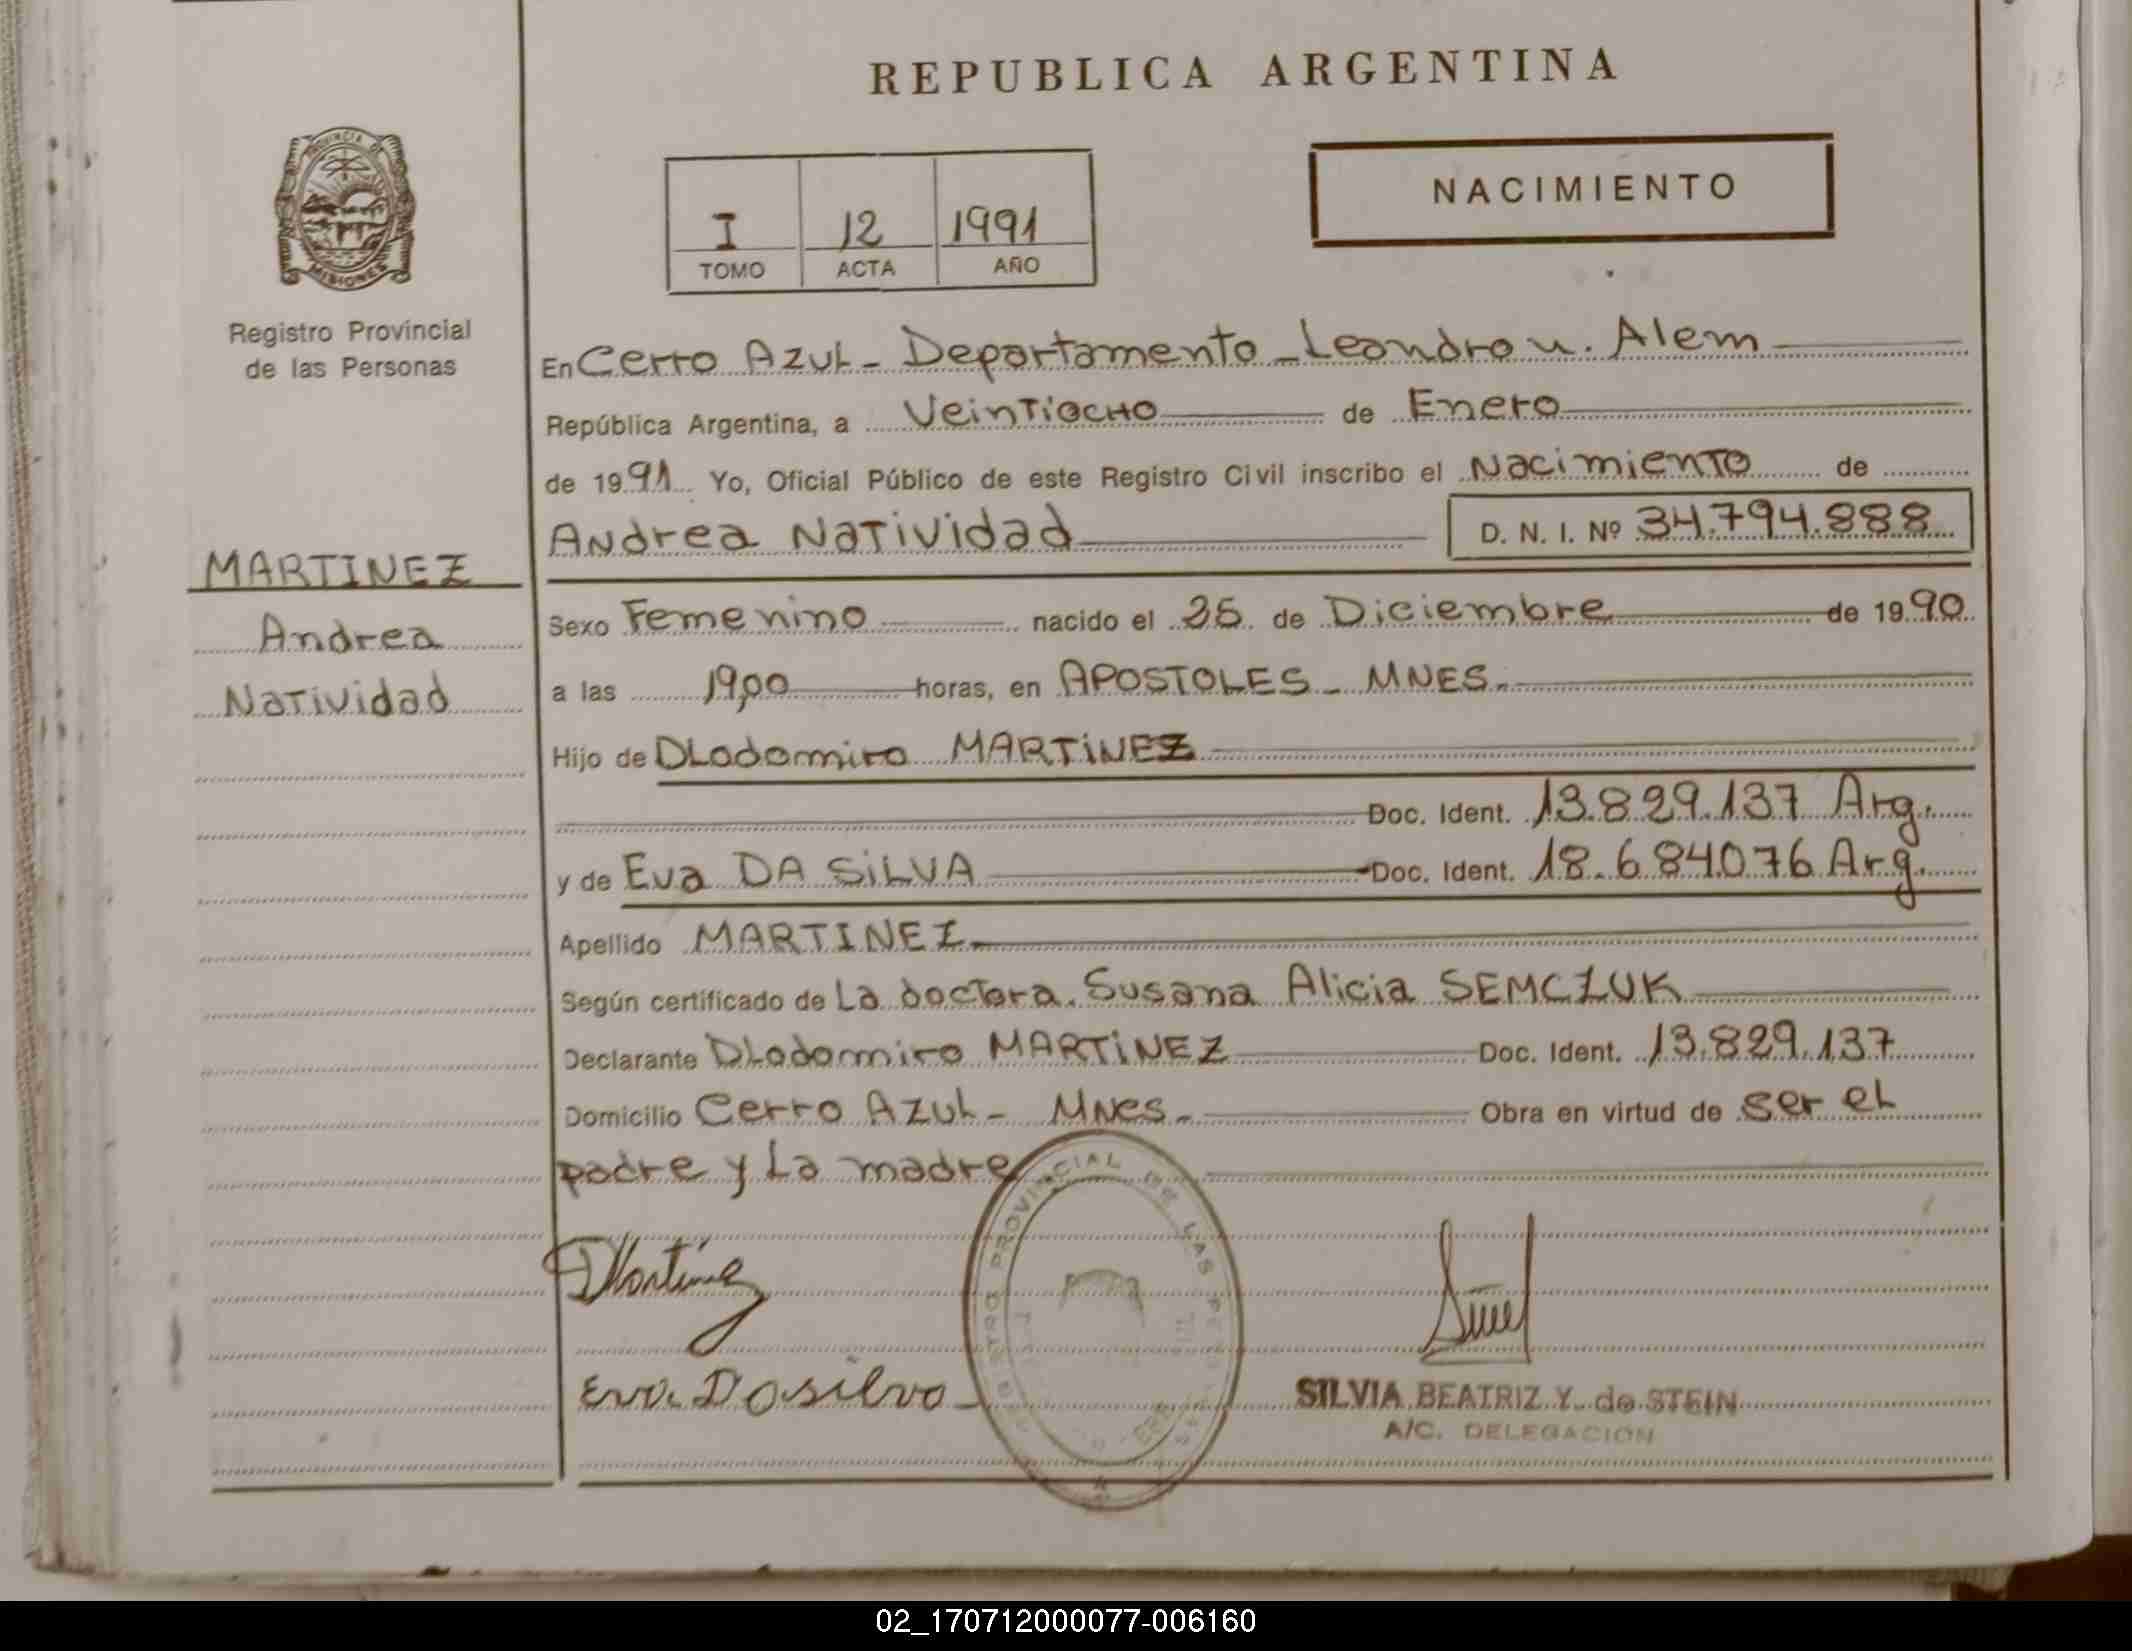 REPUBLICA ARGENTINA
PROVINCIA DE
MISIONES
Registro Provincial
de las Personas
I 12 1991
TOMO ACTA AÑO
NACIMIENTO
En Cerro Azul - Departamento - Leandro N. Alem
República Argentina, a Veintiocho de Enero
de 1991 Yo, Oficial Público de este Registro Civil inscribo el Nacimiento de
Andrea Natividad D. N. I. Nº 34.794.888
MARTINEZ
Andrea
Natividad
Sexo Femenino nacido el 25 de Diciembre de 1990
a las 19,00 horas, en APOSTOLES - MNES.
Hijo de DLodomiro MARTINEZ
Doc. Ident. 13.829.137 Arg.
y de Eva DA SILVA Doc. Ident. 18.684.076 Arg.
Apellido MARTINEZ
Según certificado de La doctora Susana Alicia SEMCZUK
Declarante DLodomiro MARTINEZ Doc. Ident. 13.829.137
Domicilio Cerro Azul - Mnes. Obra en virtud de ser el
padre y La madre
DMartinez
Eva Dasilva
REGISTRO PROVINCIAL DE LAS PERSONAS
SILVIA BEATRIZ Y. de STEIN
A/C. DELEGACION
02_170712000077-006160